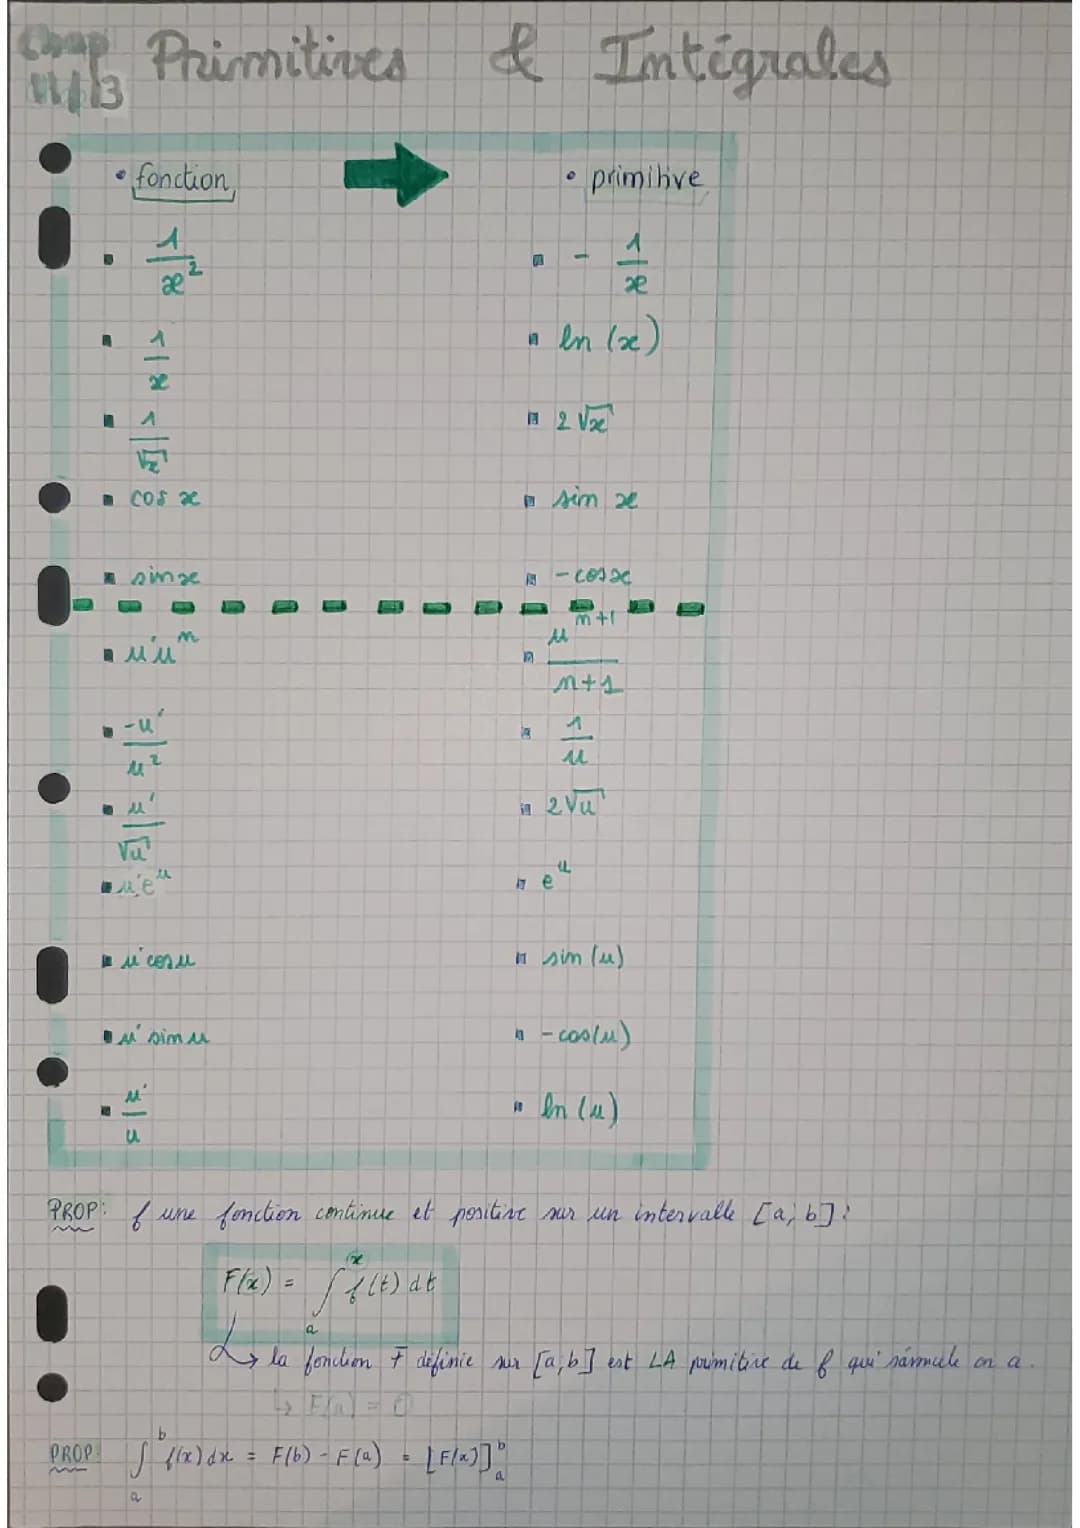 Chap 11/13 Primitives & Intégrales
• fonction • primitive
1/x² - 1/x
1/x ln (x)
1/√x 2√x
cos x sin x
sin x -cos x
u'uⁿ uⁿ⁺¹/n+1
-u'/u² 1/u
u'/√u 2√u
u'eᵘ eᵘ
u'cosu sin (u)
u' sin u -cos(u)
u'/u ln (u)
PROP: f une fonction continue et positive sur un intervalle [a; b]:
F(x) = ∫ₐˣ f(t) dt
↳ la fonction F définie sur [a; b] est LA primitive de f qui s'annule en a.
↳ F(a) = 0
PROP: ∫ₐᵇ f(x) dx = F(b) - F(a) = [F(x)]ₐᵇ